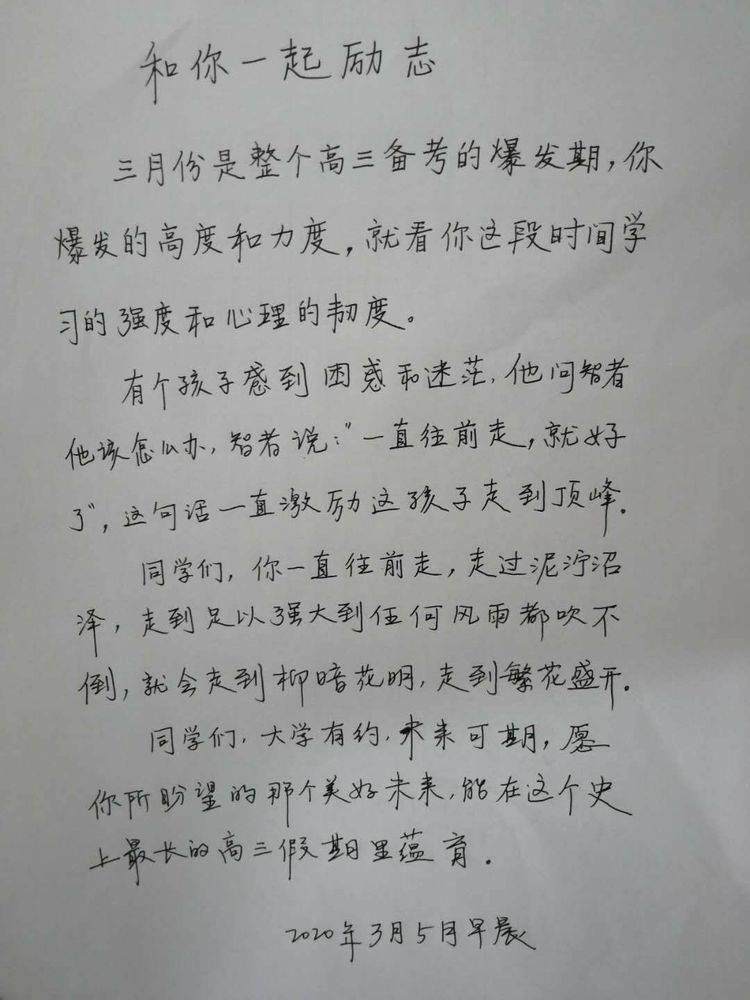 和你一起励志
三月份是整个高三备考的爆发期,你
爆发的高度和力度,就看你这段时间学
习的强度和心理的韧度。
有个孩子感到困惑和迷茫,他问智者
他该怎么办,智者说:"一直往前走,就好
了",这句话一直激励这孩子走到顶峰.
同学们,你一直往前走,走过泥泞沼
泽,走到足以强大到任何风雨都吹不
倒,就会走到柳暗花明,走到繁花盛开.
同学们,大学有约,未来可期,愿
你所盼望的那个美好未来,能在这个史
上最长的高三假期里蕴育.
2020年3月5月早晨